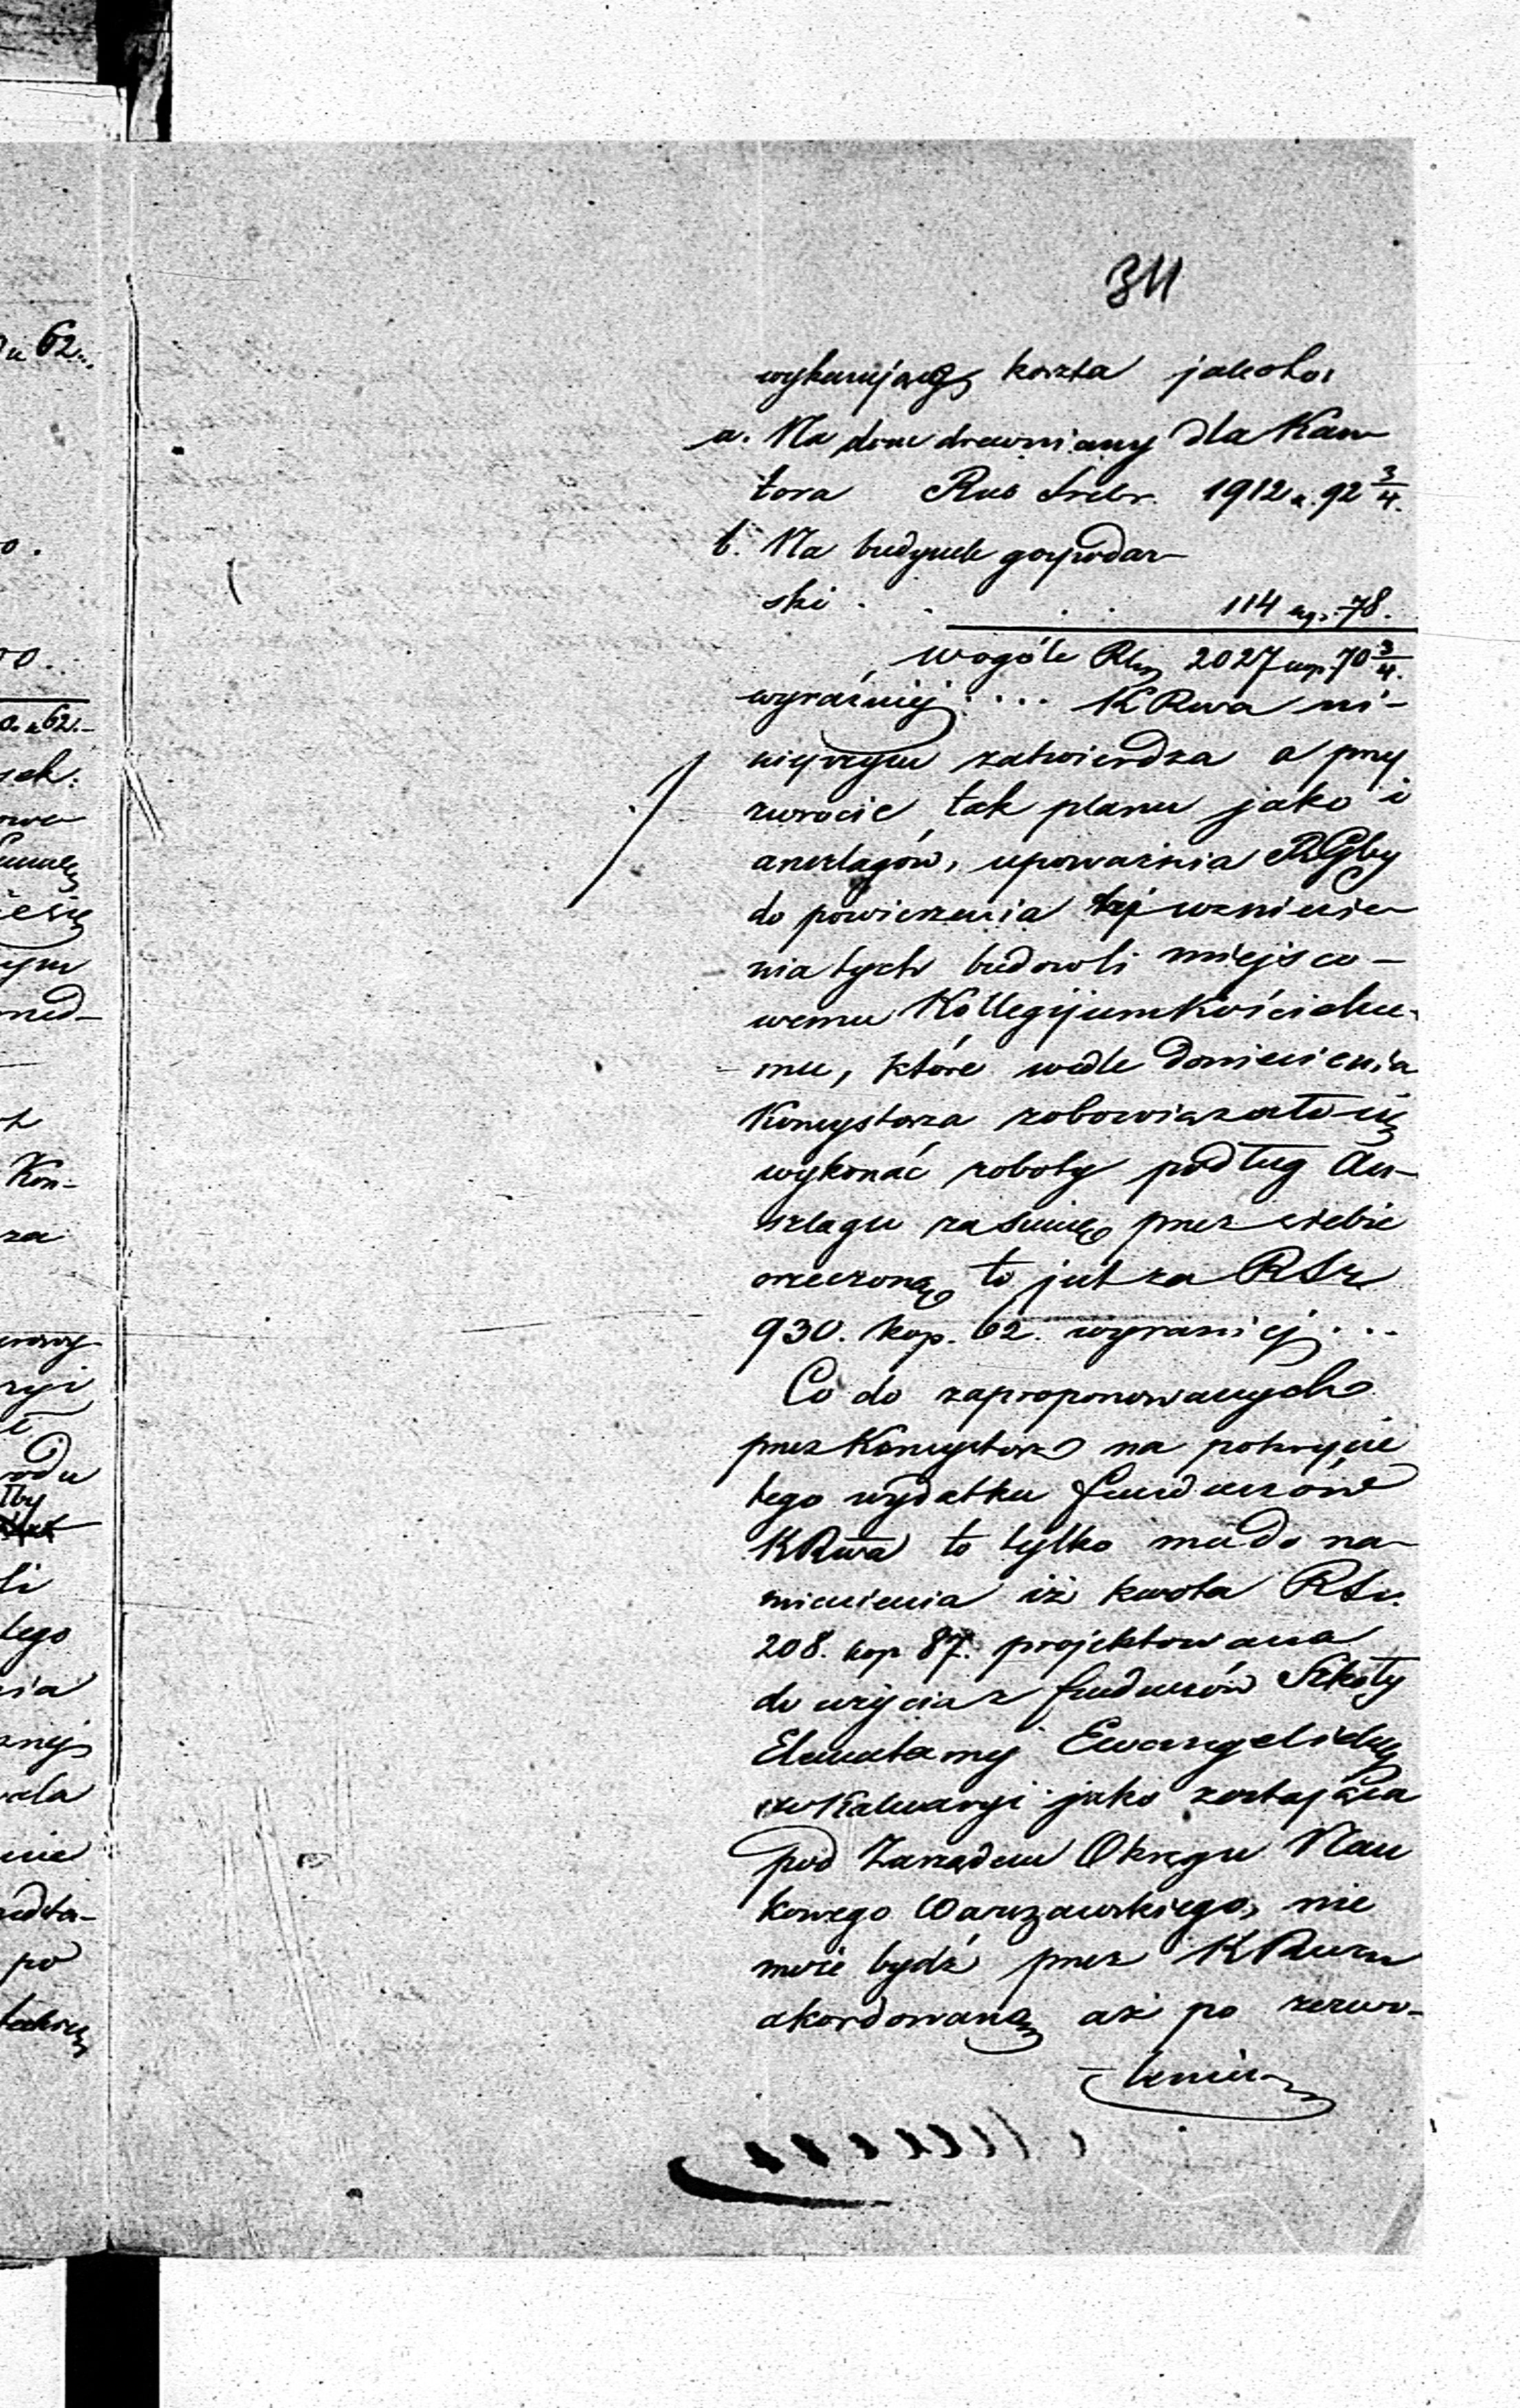 311
wykazujący koszta jakoto:
a. Na dom drewniany dla Kan-
tora Rub Srebr. 1912 k. 92 3/4.
b. Na budynek gospodar-
ski . . . . 114 kop. 78.
wogóle RSr 2027 kop. 70 3/4.
wyraźniej . . . . KRwa ni-
niejszym zatwierdza a przy
zwrocie tak planu jako i
anszlagów, upoważnia RGby
do powierzenia wzniesie-
nia tych budowli miejsco-
wemu Kollegijum Kościelne-
mu, które wedle doniesienia
Konsystorza zobowiązało się
wykonać roboty podług An-
szlagu za sumę przez siebie
orzeczoną to jest za RSr
930. kop. 62. wyraźniej . . .
Co do zaproponowanych
przez Konsystorz na pokrycie
tego wydatku funduszów
KRwa to tylko ma do na-
mienienia iż kwota RSr.
208. kop 87. projektowana
do użycia z funduszów Szkoły
Elementarnej Ewangelickiej
w Kalwaryi jako zostająca
pod Zarządem Okręgu Nau
kowego Warszawskiego, nie
może bydź przez KRwą
akordowaną aż po zezwo-
leniu
u 62.
0.
k 62.-
Kon-
za
rodu
li
tego
nia
po